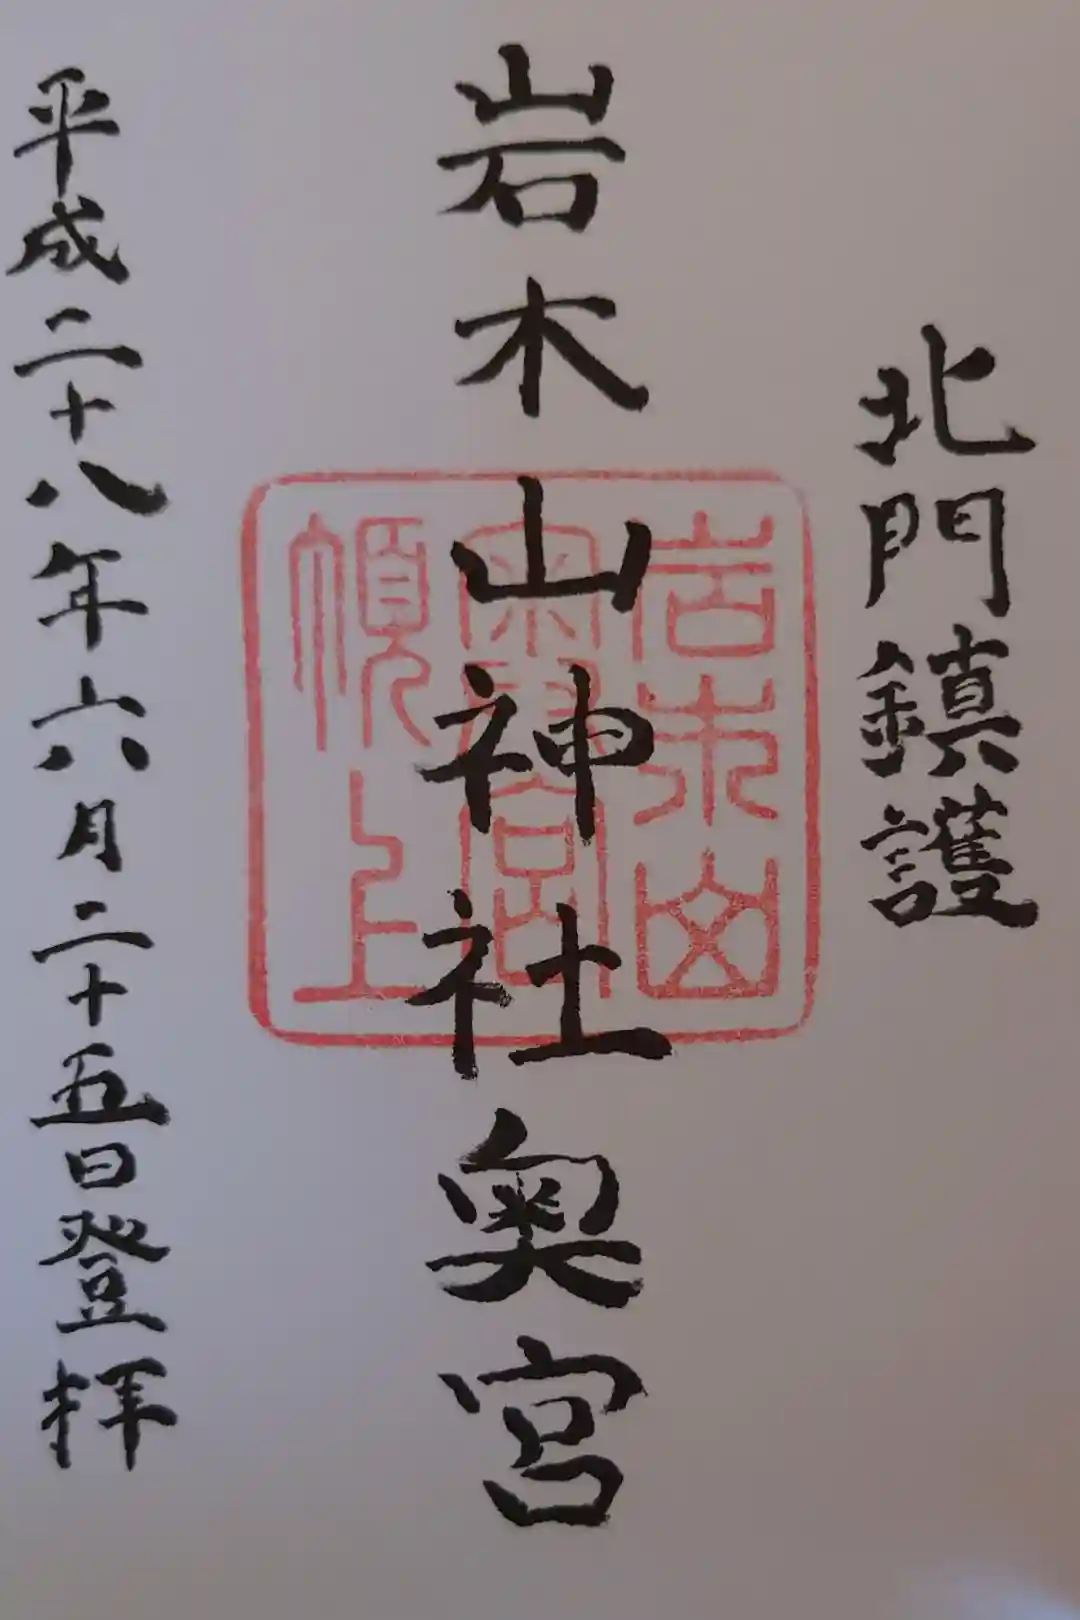 北門鎮護
岩木山神社奥宮
岩木山
奥宮
頂上
平成二十八年六月二十五日登拝